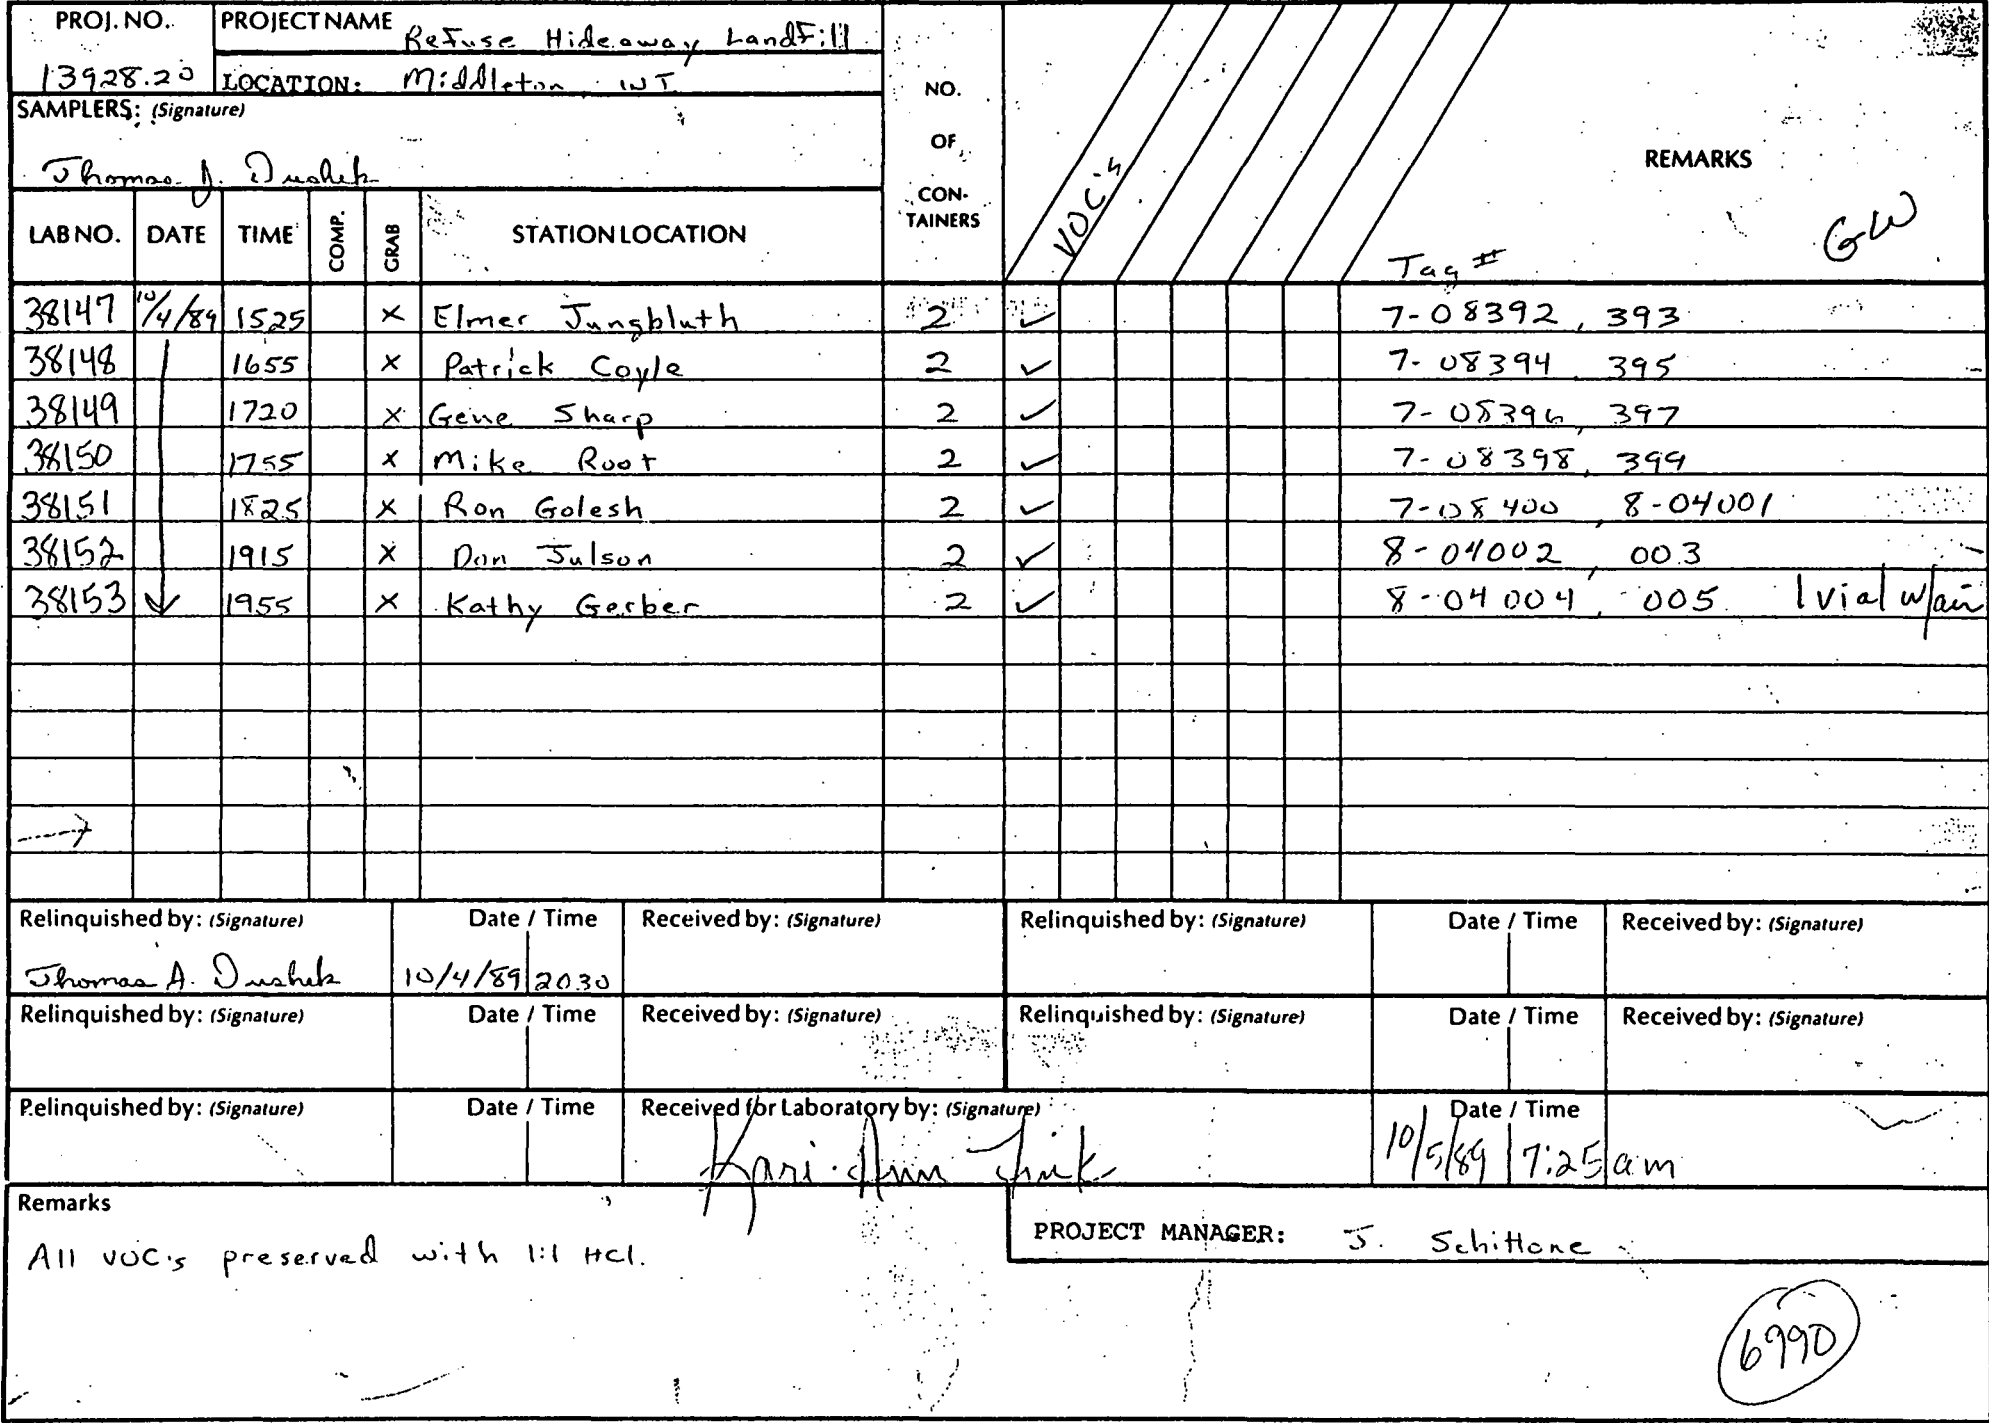 PROJ. NO. PROJECT NAME Refuse Hideaway Landfill
13928.20 LOCATION: Middleton, WI
SAMPLERS: (Signature)
Thomas A. Dushek
NO. OF CON-TAINERS
VOC's
REMARKS
GW
Tag #
LAB NO. DATE TIME COMP. GRAB STATION LOCATION
38147 10/4/89 1525 x Elmer Jungbluth 2 ✓ 7-08392, 393
38148 1655 x Patrick Coyle 2 ✓ 7-08394, 395
38149 1720 x Gene Sharp 2 ✓ 7-08396, 397
38150 1755 x Mike Root 2 ✓ 7-08398, 399
38151 1825 x Ron Golesh 2 ✓ 7-08400, 8-04001
38152 1915 x Don Julson 2 ✓ 8-04002, 003
38153 1955 x Kathy Gerber 2 ✓ 8-04004, 005 1 vial w/air
Relinquished by: (Signature) Date / Time Received by: (Signature) Relinquished by: (Signature) Date / Time Received by: (Signature)
Thomas A. Dushek 10/4/89 2030
Relinquished by: (Signature) Date / Time Received by: (Signature) Relinquished by: (Signature) Date / Time Received by: (Signature)
Relinquished by: (Signature) Date / Time Received for Laboratory by: (Signature) Date / Time
Kari Ann 10/5/89 7:25 am
Remarks
All VOC's preserved with 1:1 HCl.
PROJECT MANAGER: J. Schittone
6990